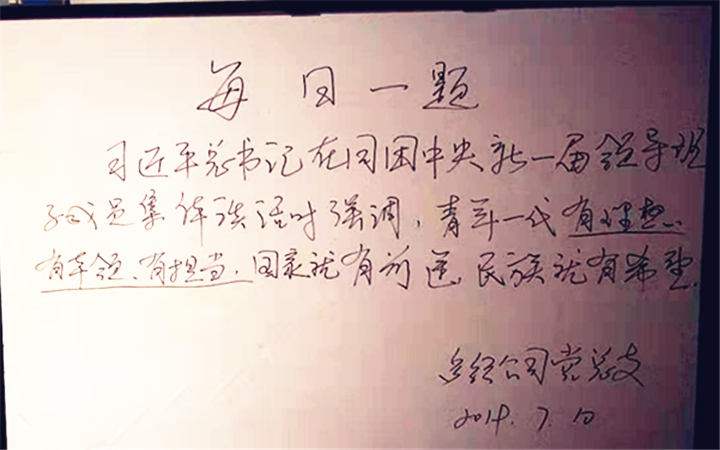 每日一题
习近平总书记在同团中央新一届领导班
子成员集体谈话时强调，青年一代有理想、
有本领、有担当，国家就有前途，民族就有希望。
公司党总支
2014.7.10